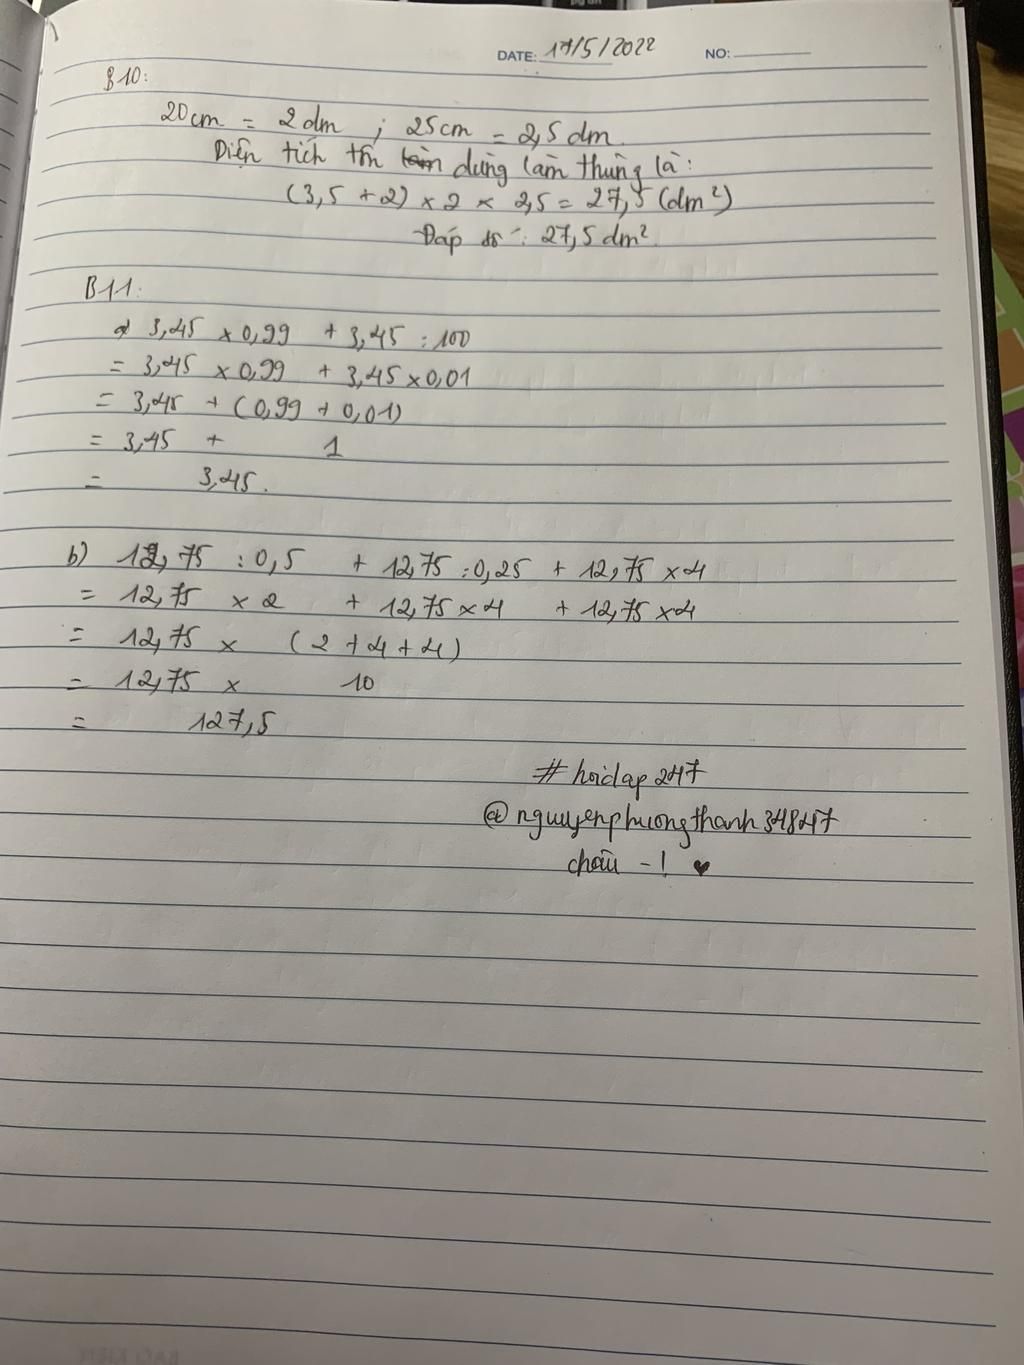 DATE: 17/5/2022 NO:
B10:
20cm = 2 dm ; 25cm = 2,5 dm
Diện tích tôn dùng làm thùng là:
(3,5 + 2) × 2 × 2,5 = 27,5 (dm²)
Đáp số : 27,5 dm².
B11:
a) 3,45 × 0,99 + 3,45 : 100
= 3,45 × 0,99 + 3,45 × 0,01
= 3,45 + (0,99 + 0,01)
= 3,45 + 1
= 3,45.
b) 12,75 : 0,5 + 12,75 : 0,25 + 12,75 × 4
= 12,75 × 2 + 12,75 × 4 + 12,75 × 4
= 12,75 × (2 + 4 + 4)
= 12,75 × 10
= 127,5
# hoidap247
@nguyenphuongthanh34847
-! ♥